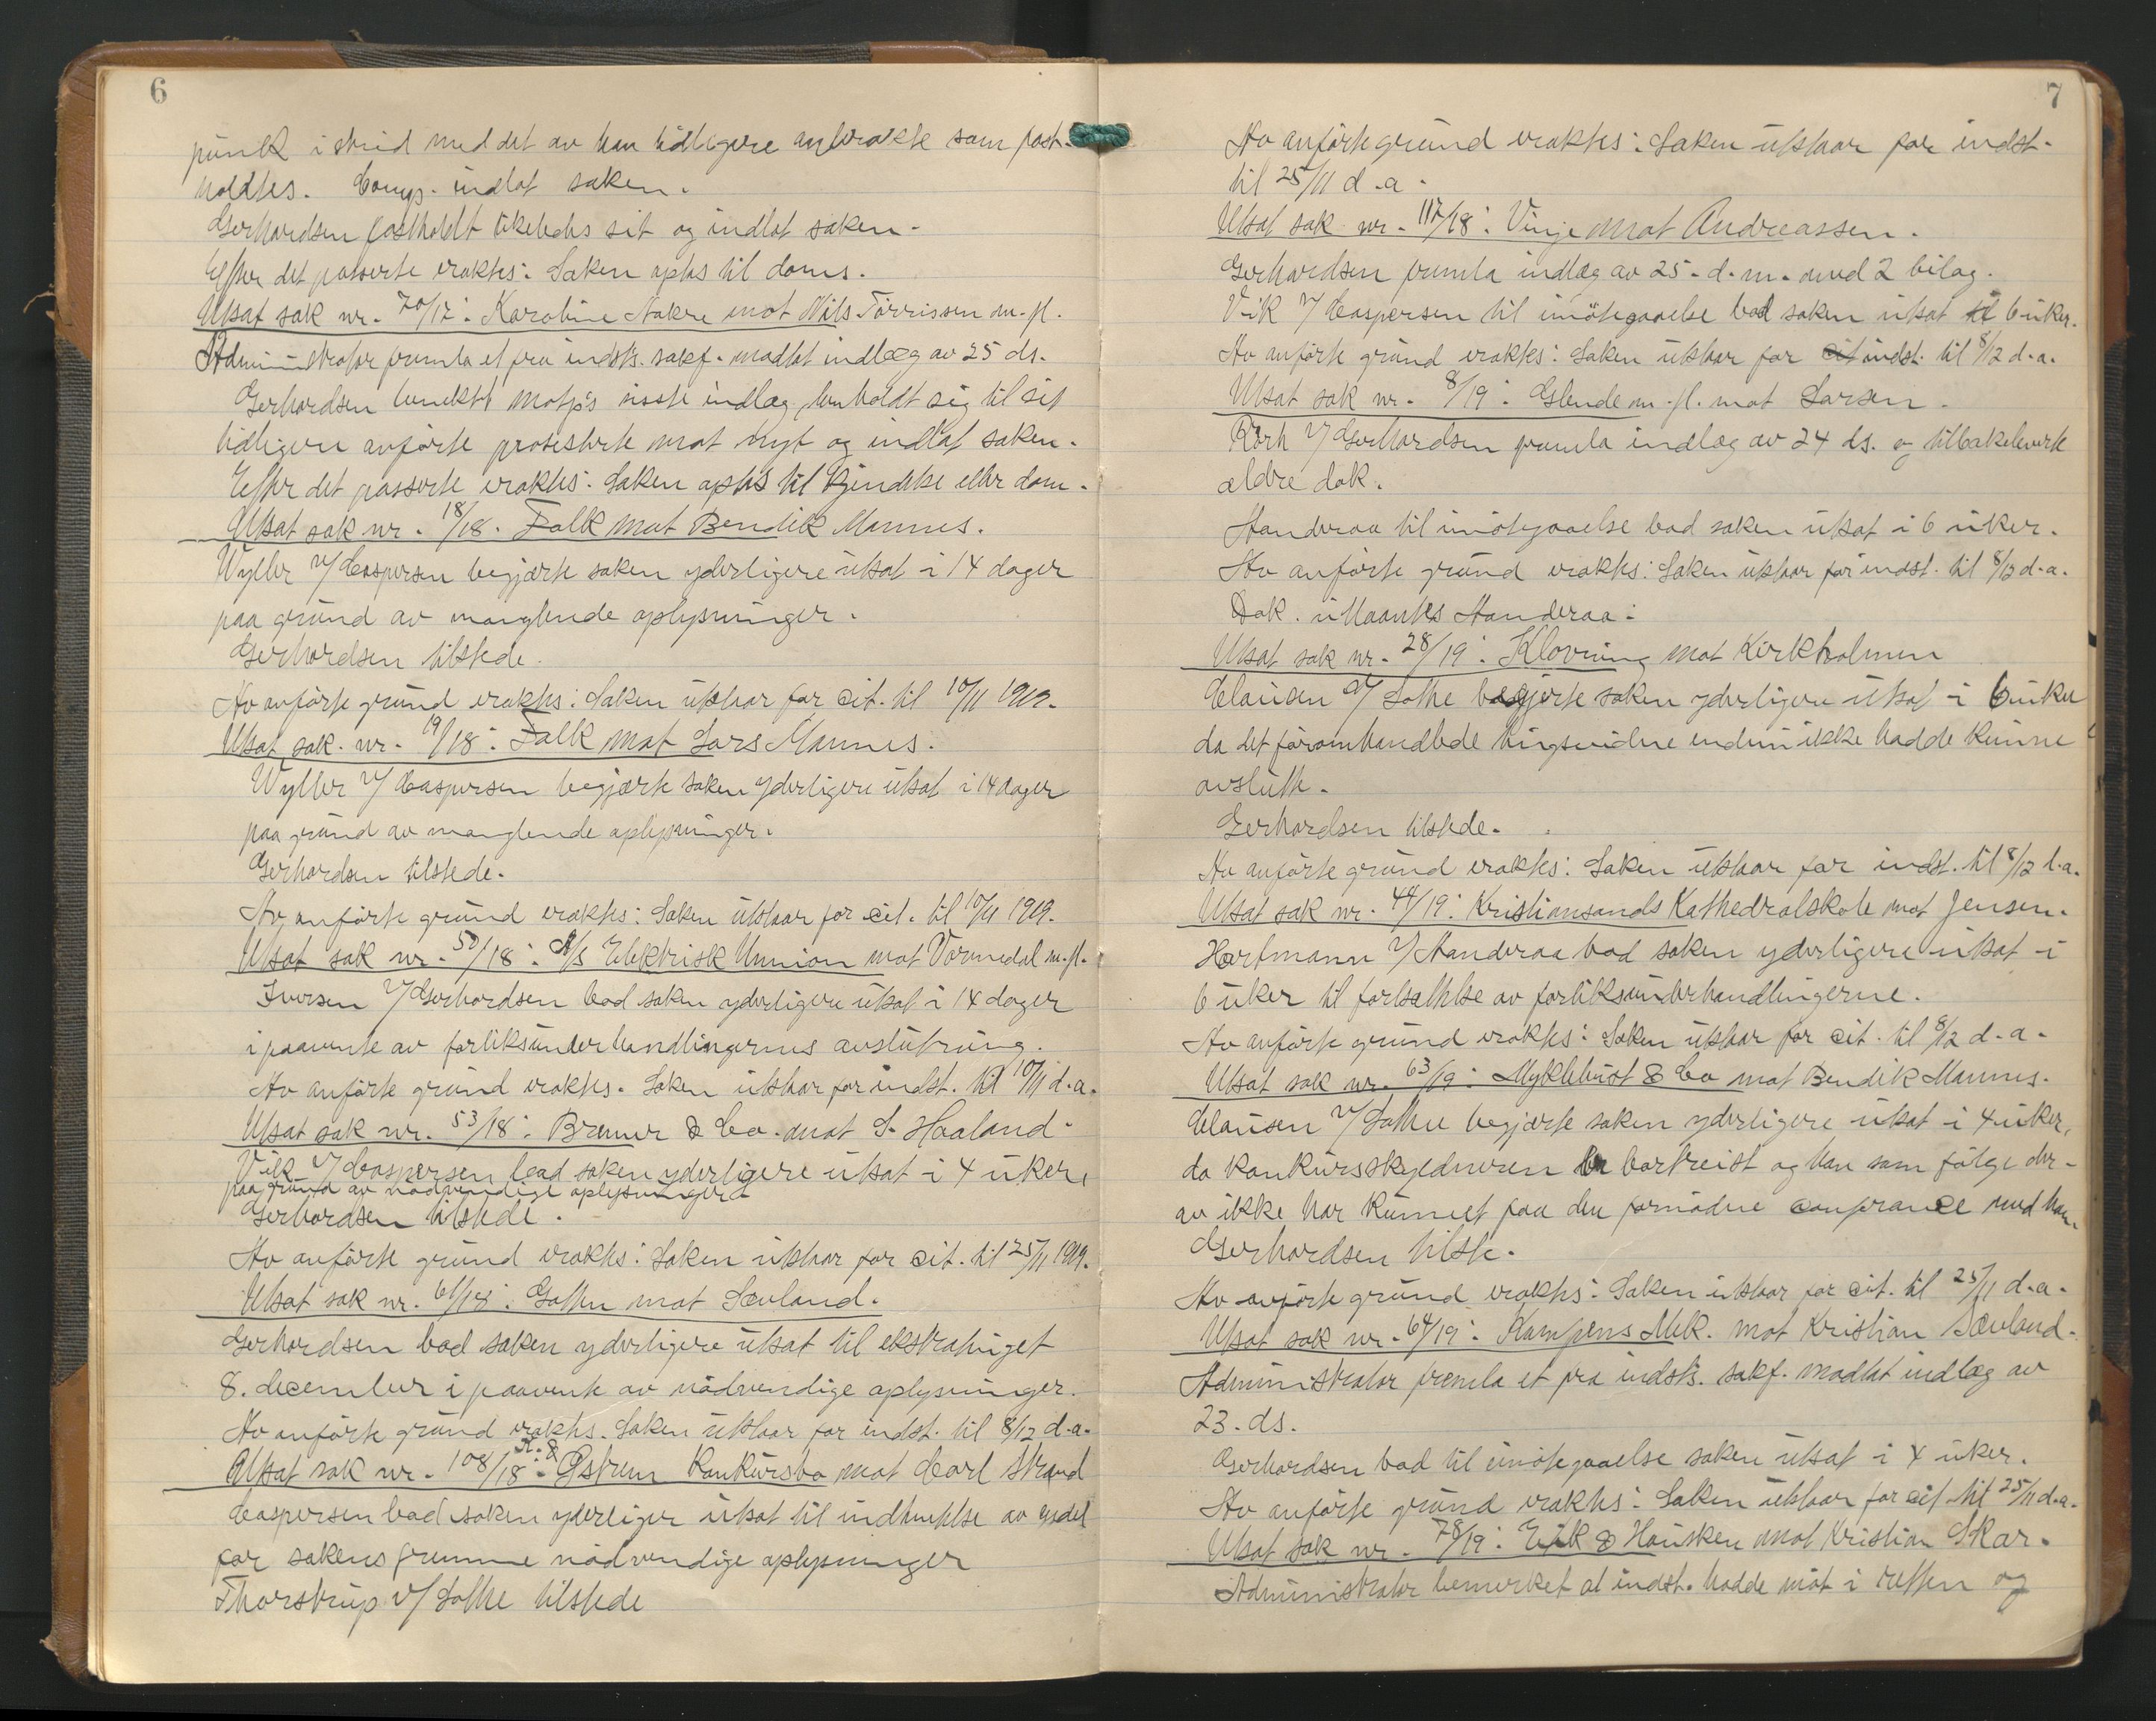 6
punkt i strid med det av han tidligere anførte som fast-
holdtes. Comp. indlot saken.
Gerhardsen fastholdt likeledes sit og indlot saken.
Efter det passerte eraktes: Saken optas til doms.
Utsat sak nr. 70/17: Karoline Aakre mot Nils Tørrissen m.fl.
Administrator fremla et fra indst's. sakf. modtat indlæg av 25 ds.
Gerhardsen motp's siste indlæg, henholdt sig til sit
tidligere anførte protesterte mot nyt og indlot saken.
Efter det passerte eraktes: Saken optas til kjendelse eller dom.
Utsat sak nr. 18/18. Falk mot Bendik Mannes.
Wyller v/ Caspersen begjærte saken yderligere utsat i 14 dager
paa grund av manglende oplysninger.
Gerhardsen tilstede.
Av anførte grund eraktes: Saken utstaar for cit. til 10/11 1919.
Utsat sak. nr. 19/18: Falk mot Lars Mannes.
Wyller v/ Caspersen begjærte saken yderligere utsat i 14 dager
paa grund av manglende oplysninger.
Gerhardsen tilstede.
Av anførte grund eraktes: Saken utstaar for cit. til 10/11 1919.
Utsat sak nr. 50/18: A/s Elektrisk Unnion mot Vormedal m.fl.
Iversen v/ Gerhardsen bad saken yderligere utsat i 14 dager
i paavente av forliksunderhandlingernes avslutning.
Av anførte grund eraktes. Saken utstaar for indst. til 10/11 d.a.
Utsat sak nr. 53/18: Bremer & Co. mot S. Haaland.
Vik v/ Caspersen bad saken yderligere utsat i 4 uker,
paa grund av nødvendige oplysninger
Gerhardsen tilstede.
Av anførte grund eraktes: Saken utstaar for cit. til 25/11 1919.
Utsat sak nr. 61/18: Gothe mot Sævland.
Gerhardsen bad saken yderligere utsat til ekstratinget
8. december i paavente av nødvendige oplysninger.
Av anførte grund eraktes. Saken utstaar for indst. til 8/12 d.a.
Utsat sak nr. 108/18: R. & Østrem konkursbo mot Carl Strand
Caspersen bad saken yderliger utsat til indhentelse av endel
for sakens fremme nødvendige oplysninger
Thorstrup v/ Lothe tilstede
7
Av anførte grund eraktes: Saken utstaar for indst.
til 25/11 d.a.
Utsat sak nr. 117/18: Vinje mot Andreassen.
Gerhardsen fremla indlæg av 25. d.m. med 2 bilag.
Vik v/ Caspersen til imøtegaaelse bad saken utsat til 6 uker.
Av anførte grund eraktes: Saken utstaar for cit indst. til 8/12 d.a.
Utsat sak nr. 8/19: Glende m.fl. mot Larsen.
v/ Gerhardsen fremla indlæg av 24 ds. og tilbakeleverte
ældre dok.
Handeraa til imøtegaaelse bad saken utsat i 6 uker.
Av anførte grund eraktes: Saken utstaar for indst. til 8/12 d.a.
Dok. utlaantes Handeraa.
Utsat sak nr. 28/19: Klovning mot Kirkholmen
Clausen v/ Lothe begjærte saken yderligere utsat i 6 uker
da det foromhandlede tingsvidne endnu ikke hadde kunne
avslutte.
Gerhardsen tilstede.
Av anførte grund eraktes: Saken utstaar for indst. til 8/12 d.a.
Utsat sak nr. 44/19: Kristiansands Kathedralskole mot Jensen.
Hartmann v/ Handeraa bad saken yderligere utsat i
6 uker til fortsættelse av forliksunderhandlingerne.
Av anførte grund eraktes: Saken utstaar for cit. til 8/12 d.a.
Utsat sak nr. 63/19: Myklebust & Co mot Bendik Mannes.
Clausen v/ Lothe begjærte saken yderligere utsat i 4 uker,
da konkursskyldneren er bortreist og han som følge der-
av ikke har kunnet faa den fornødne confrance med ham.
Gerhardsen tilst.
Av anførte grund eraktes: Saken utstaar for cit. til 25/11 d.a.
Utsat sak nr. 64/19: Kampens Mek. mot Kristian Sævland.
Administrator fremla et fra indst's. sakf. modtat indlæg av
23. ds.
Gerhardsen bad til imøtegaaelse saken utsat i 4 uker.
Av anførte grund eraktes: Saken utstaar for cit. til 25/11 d.a.
Utsat sak nr. 78/19: Eik & Hausken mot Kristian Skar.
Administrator bemerket at indst. hadde møt i retten og